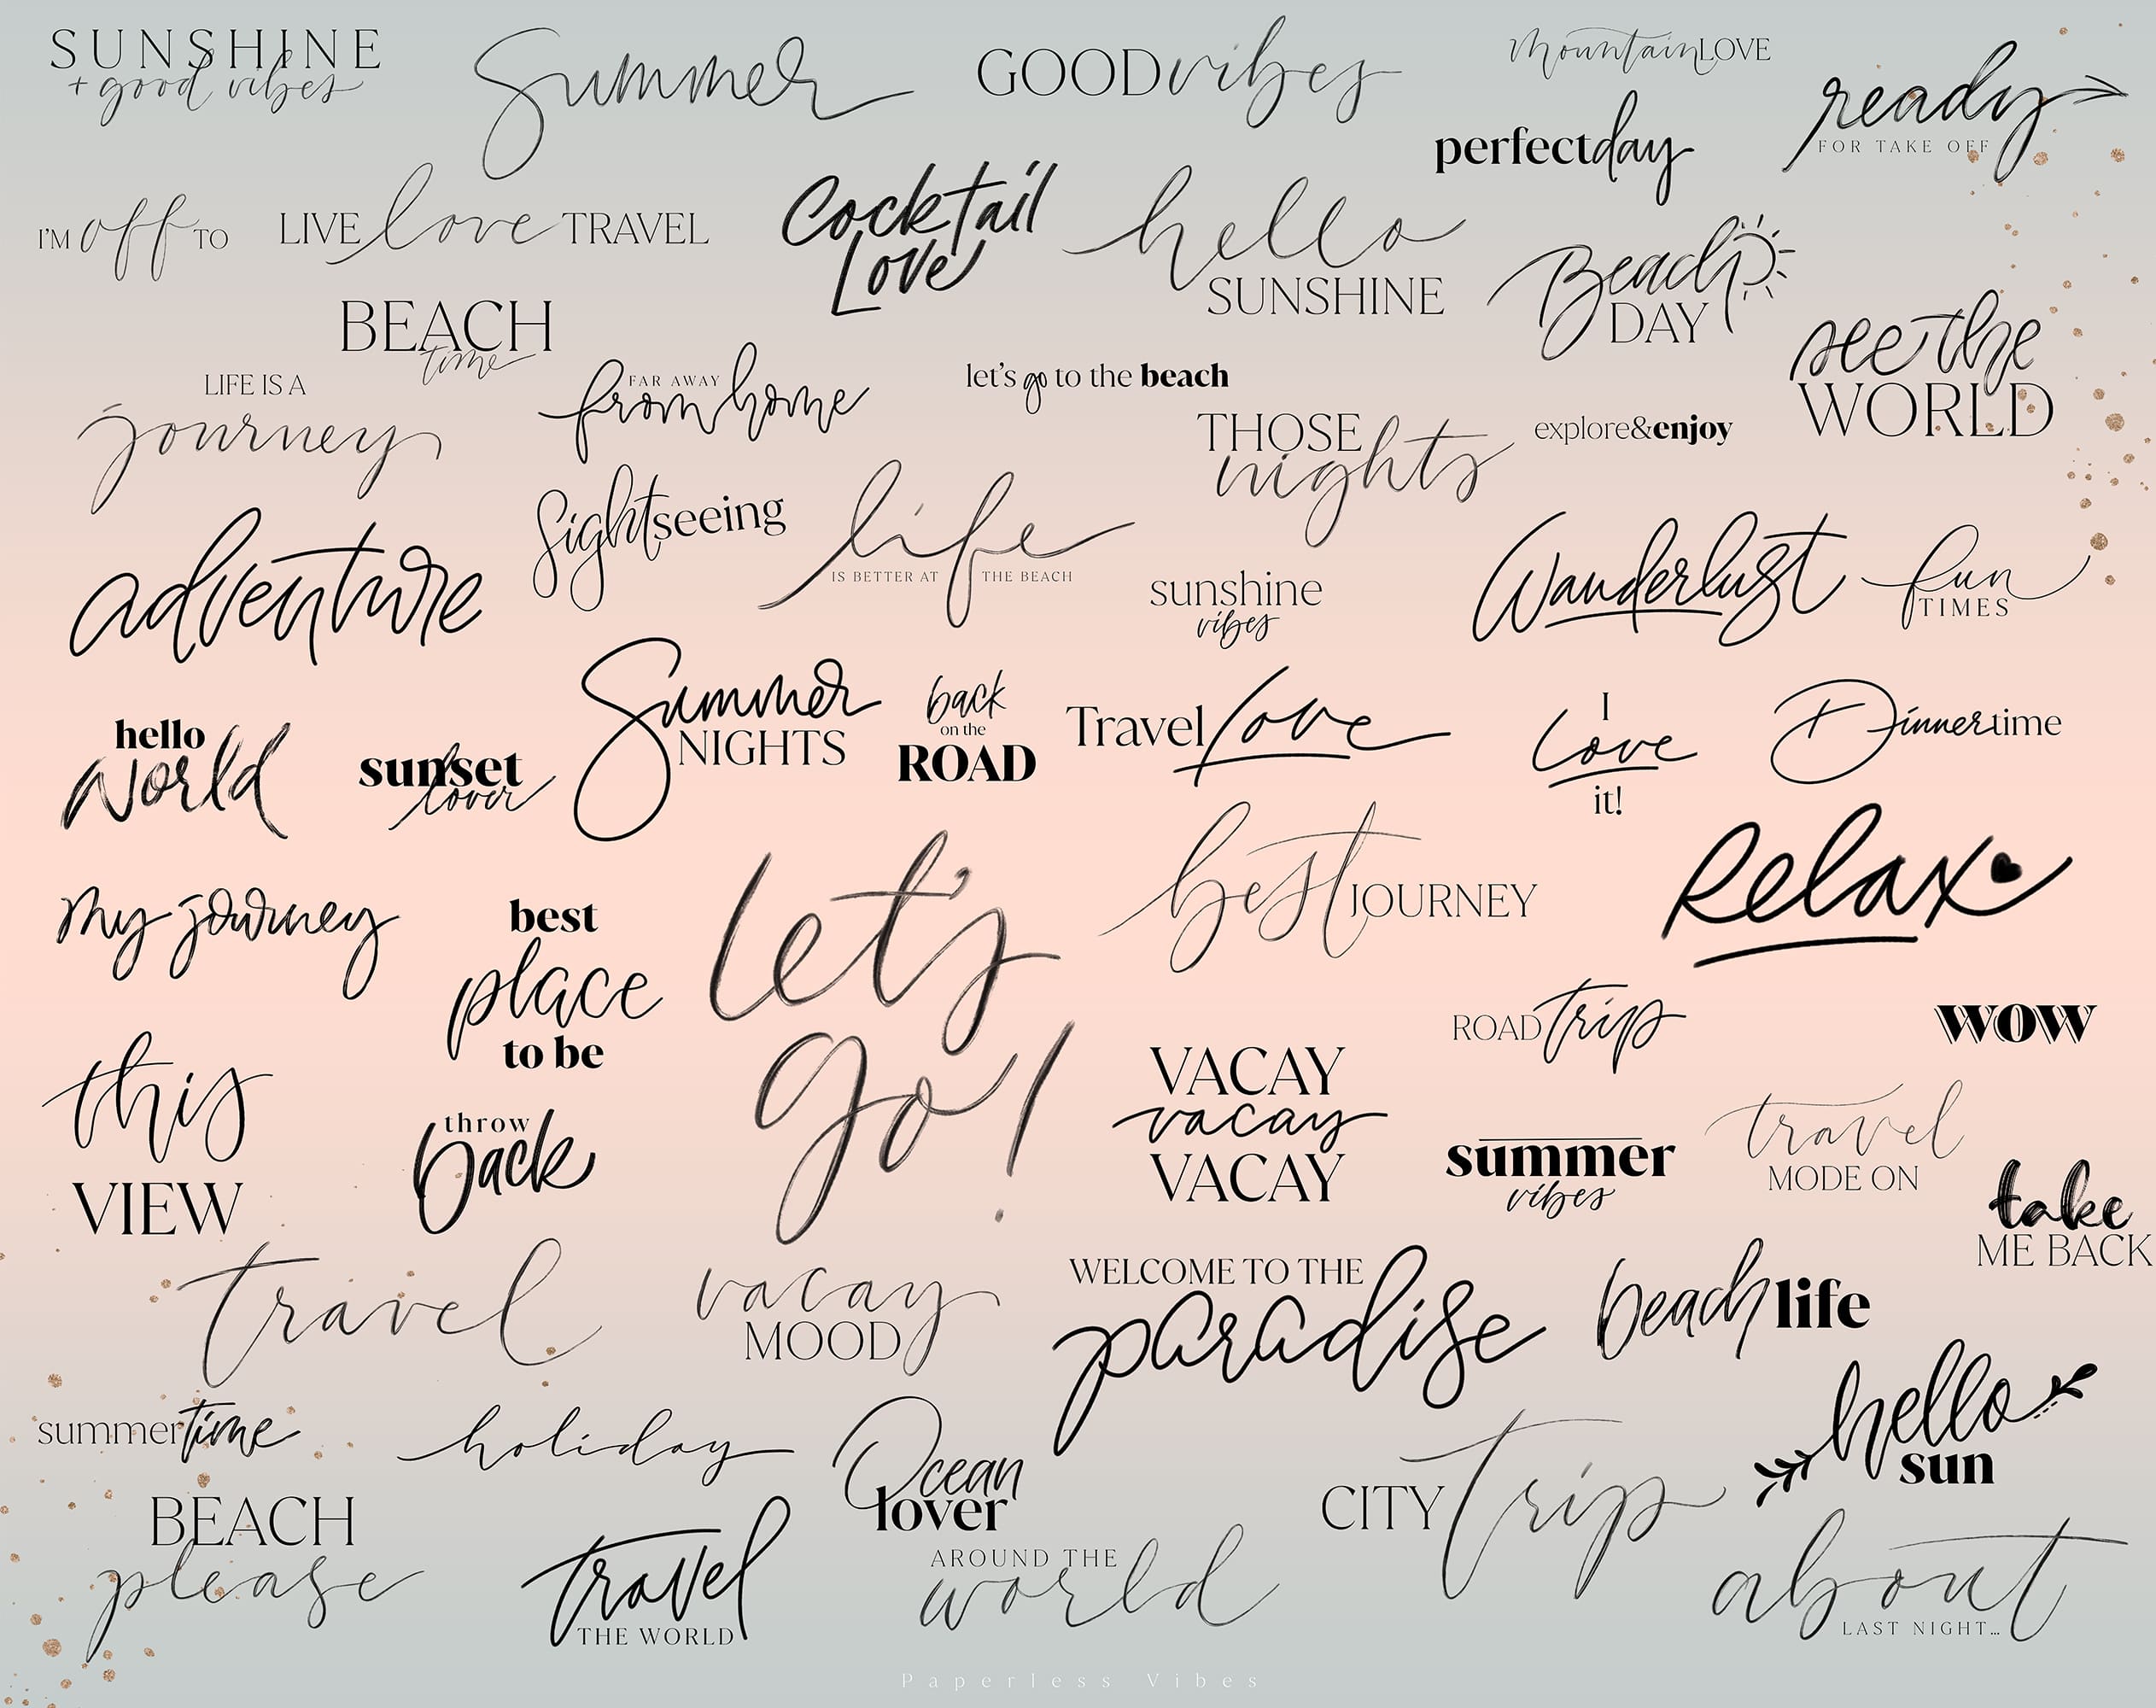 SUNSHINE
+ good vibes
Summer
GOOD vibes
mountain LOVE
perfectday
ready
FOR TAKE OFF
I'M off TO
LIVE love TRAVEL
Cocktail
Love
hello
SUNSHINE
Beach
DAY
BEACH
time
see the
WORLD
LIFE IS A
journey
FAR AWAY
from home
let's go to the beach
THOSE
nights
explore&enjoy
adventure
Sightseeing
life
IS BETTER AT THE BEACH
sunshine
vibes
Wanderlust
fun
TIMES
hello
world
sunset
lover
Summer
NIGHTS
back
on the
ROAD
Travel Love
I
Love
it!
Dinnertime
my journey
best
place
to be
let's
go!
best JOURNEY
Relax
ROAD trip
WOW
this
VIEW
throw
back
VACAY
vacay
VACAY
summer
vibes
travel
MODE ON
take
ME BACK
travel
vacay
MOOD
WELCOME TO THE
paradise
beach life
summertime
holiday
Ocean
lover
CITY trip
hello
sun
BEACH
please
travel
THE WORLD
AROUND THE
world
about
LAST NIGHT...
Paperless Vibes